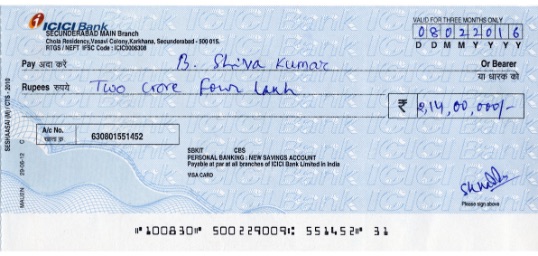 ICICI Bank
SECUNDERABAD MAIN Branch
Chola Residency, Vasavi Colony, Karkhana, Secunderabad - 500 015.
RTGS / NEFT IFSC Code : ICIC0006308
VALID FOR THREE MONTHS ONLY
08022016
D D M M Y Y Y Y
Pay अदा करे B. Shiva Kumar Or Bearer
या धारक को
Rupees रुपये Two crore Four Lakh
₹ 2,14,00,000/-
A/c No. 630801551452
SBKIT CBS
PERSONAL BANKING : NEW SAVINGS ACCOUNT
Payable at par at all branches of ICICI Bank Limited in India
VISA CARD
Please sign above
SESHAASAI (M) / CTS - 2010
⑈100830⑈ 500229009⑆ 551452⑈ 31